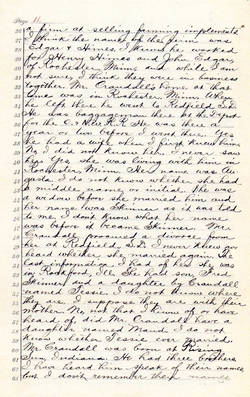 Page 11.
"a firm at selling farming implements"
I think the name of the firm was
Edgar & Himes. I know he worked
for J. Henry Himes and John Edgar,
of Rochester Minn, and while I am
not sure I think they were in business
together. Mr. Crandall's home at that
time was in Rochester Minn. When
he left there he went to Redfield S.D.
He was baggageman there at the Depot
for the C. & N.W. R.R. He was there a
year or two before I went there. Yes
he had a wife when I first knew him
No, I did not know her, I never saw
her. Yes she was living with him in
Rochester, Minn. Her name was
I do not know whether she had
a middle name or initial. She was
a widow before she married him and
her name was Skinner as it was told
to me. I don't know what her name
was before it became Skinner. Mr.
Crandall procured a divorce from
her at Redfield, S.D. I never knew nor
heard whether she married again. The
last information I had of her she was
in Rockford, Ill. She had son, Fred
Skinner and a daughter by Crandall
named Jessie. I do not know where
they are. I suppose they are with their
mother. No, not that I know of or have
heard of did Mr. Crandall have a
daughter named Maud. I do not
know whether Jessie ever married.
Mr. Crandall was born at Rising
Sun, Indiana. He had three brothers
I have heard him speak of their names
but I don't remember their names